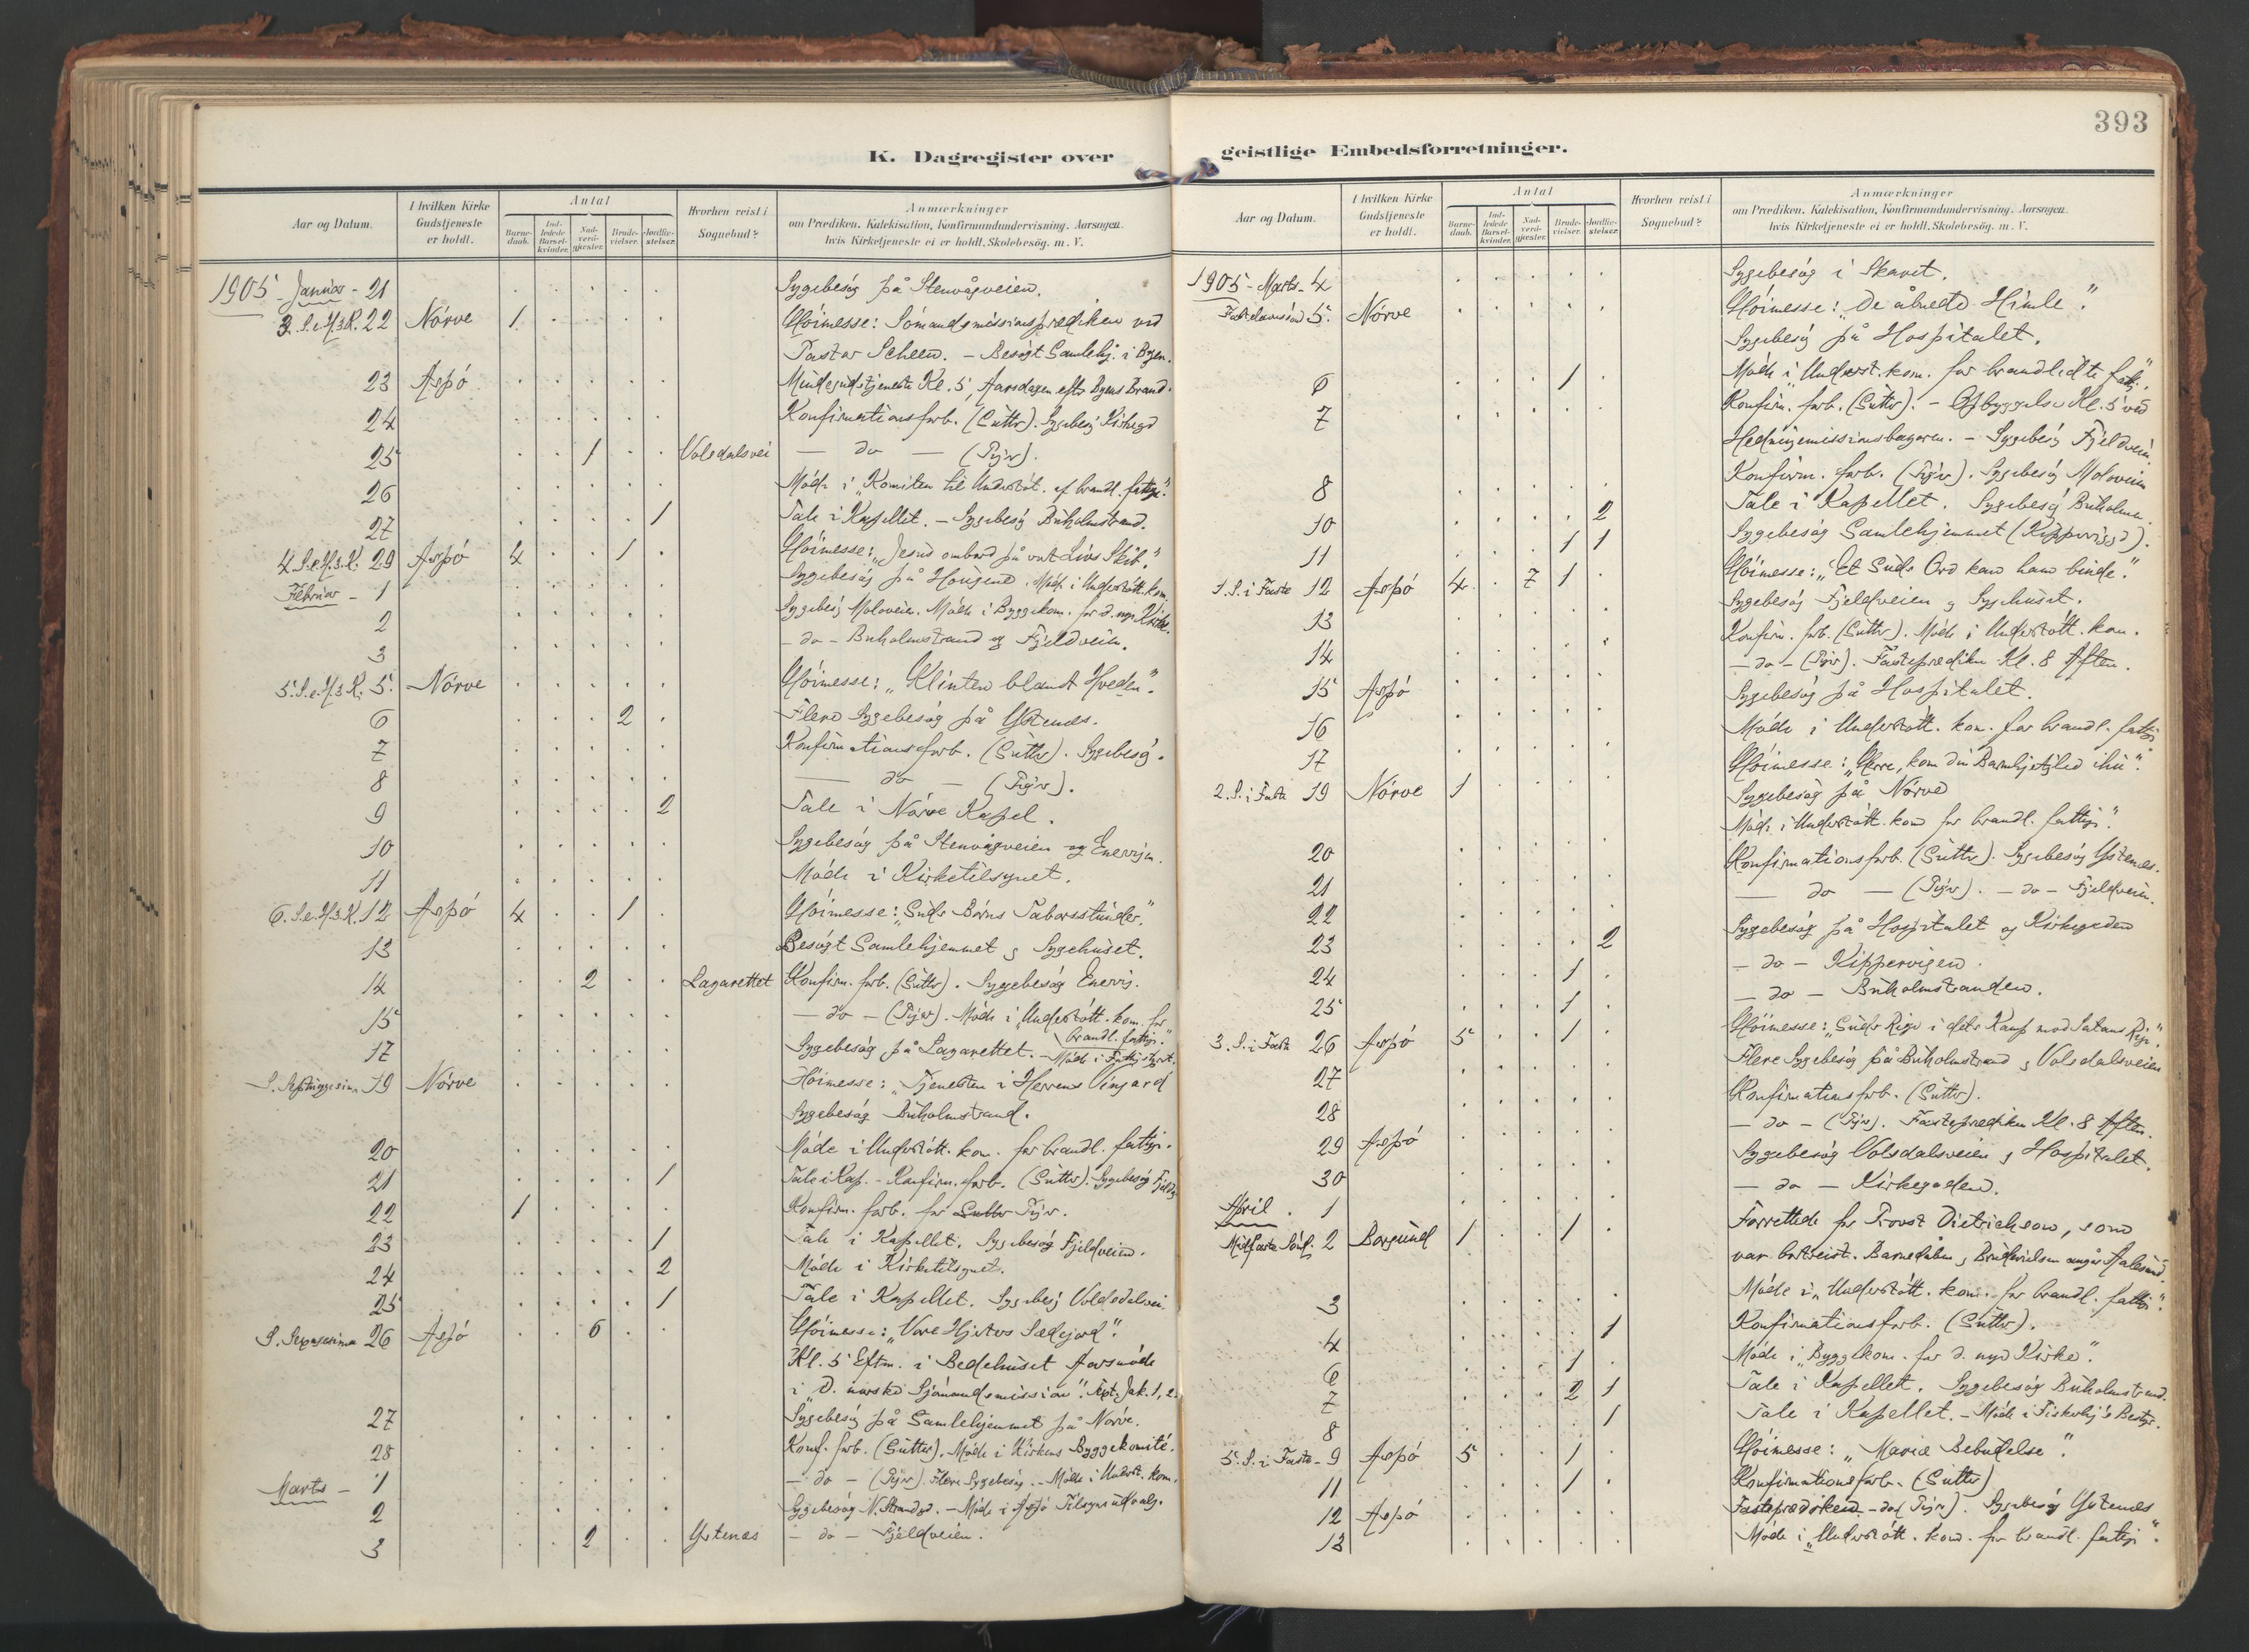 393
K. Dagregister over
geistlige Embedsforretninger.
Aar og Datum.
I hvilken Kirke Gudstjeneste er holdt.
Antal
Barne-daab.
Ind-ledede Barsel-kvinder.
Nad-verd-gjester.
Brude-vielser.
Jordfæ-stelser.
Hvorhen reist i Sognebud?
Anmærkninger
om Prædiken, Katekisation, Konfirmandundervisning, Aarsagen,
hvis Kirketjeneste ei er holdt, Skolebesøg, m. V.
1905 - Januar - 21 Sygebesøg på Stenvågveien.
3. S. e. H.3.K. 22 Nørve 1 Høimesse: Sømandsmissionsprædiken ved
Pastor Scheen. - Besøgt Samlehj. i Byen.
23 Aspø Mindegudstjeneste Kl. 5, Aarsdagen efter Byens Brand.
24 Konfirmationsforb. (Gutter). Sygebesøg Kirkegd
25 1 Volsdalsvei — do — (Piger).
26 Møde i "Komiteen til Understøt. af brandl. fattige".
27 1 Tale i Kapellet. - Sygebesøg Buholmstrand.
4 S. e. H.3.K. 29 Aspø 4 1 Høimesse: "Jesus ombord på vort Livs Skib."
Februar - 1 Sygebesøg på Haugene. Møde i Understøtt. kom.
2 Sygebesøg Moloveien. Møde i Byggekom. for d. nye Kirke.
3 - do - Buholmstrand og Fjeldveien.
5. S. e. H.3.K. 5. Nørve Høimesse: "Klinten blandt Hveden".
6 2 Flere Sygebesøg på Ystenes.
7 Konfirmationsforb. (Gutter). Sygebesøg.
8 — do — (Piger).
9 2 Tale i Nørve Kapel.
10 Sygebesøg på Stenvågveien og Enerhgn.
11 Møde i Kirketilsynet.
6. S. e. H.3.K. 12 Aspø 4 1 Høimesse: "Guds Børns Taborsstunder."
13 Besøgt Samlehjemmet og Sygehuset.
14 2 Lazarettet Konfirm. forb. (Gutter). Sygebesøg
15 — do — (Piger). Møde i "Understøtt. kom. for
brandl. fattige."
17 Sygebesøg på Lazarettet. - Møde i Fattigstyret.
S. Septuagesima 19 Nørve Høimesse: "Tjenesten i Herrens Vingard
Sygebesøg Buholmstrand.
20 Møde i Understøtt. kom. for brandl. fattige.
21 1 Tale i Kap. - Konfirm. forb. (Gutter). Sygebesøg
22 1 Konfirm. forb. for Gutter Piger.
23 1 Tale i Kapellet. Sygebesøg Fjeldveien.
24 2 Møde i Kirketilsynet.
25 1 Tale i Kapellet. Sygebesøg Volsdalsvei.
S. Sexagesima 26 Aspø 6 Høimesse: "Vore Hjerters Sædejord".
Kl. 5 Eftm. i Bedehuset Aarsmøde
i "D. norske Sjømandsmission". Text: Jak. 1, 2
27 Sygebesøg på Samlehjemmet på Nørve.
28 Konf. forb. (Gutter). Møde i Kirkens Byggekomité.
Marts - 1 - do - (Piger). Flere Sygebesøg. - Møde i Underst. kom.
2 Sygebesøg N. Strandgd. - Møde i Aspø Tilsynsudvalg.
3 2 Ystenæs - do - Fjeldveien.
1905 - Marts - 4 Sygebesøg i Skarit.
Fastelavnssønd 5. Nørve Høimesse: "De åbnede Himle".
Sygebesøg på Hospitalet.
6 1 Møde i "Underst. kom. for brandlidte fatt."
7 Konfirm. forb. (Gutter). - Opbyggelse Kl. 5 ved
Hedningemissionsbazaren. - Sygebesøg Fjeldveien.
8 Konfirm. forb. (Piger). Sygebesøg Moloveien
10 2 Tale i Kapellet. Sygebesøg Buholmen.
11 1 1 Sygebesøg Samlehjemmet (Kipperviggd).
1. S. i Faste 12 Aspø 4 7 1 Høimesse: "Et Guds Ord kan ham binde."
13 Sygebesøg Fjeldveien og Sygehuset.
14 Konfirm. forb. (Gutter). Møde i Understøtt. kom.
15 Aspø - do - (Piger). Fasteprædiken Kl. 8 Aften.
16 Sygebesøg på Hospitalet.
17 Møde i Understøtt. kom. for brandl. fattige
2. S. i Faste 19 Nørve 1 Høimesse: "Herre, kom din Barmhjertighed ihu".
Sygebesøg på Nørve
20 Møde i Understøtt. kom for brandl. fattige".
21 Konfirmationsforb. (Gutter). Sygebesøg Ystenes.
22 — do — (Piger). - do - Fjeldveien.
23 2 Sygebesøg på Hospitalet og Kirkegaden
24 1 - do - Kippervigen.
25 1 - do - Buholmstranden.
3. S. i Faste 26 Aspø 5 1 Høimesse: "Guds Rige i dets Kamp mod Satans Rige".
27 Flere Sygebesøg på Buholmstrand og Volsdalsveien
28 Konfirmationsforb. (Gutter).
29 Aspø - do - (Piger). Fasteprædiken Kl. 8 Aften.
30 Sygebesøg Volsdalsveien og Hospitalet.
April. 1 - do - Kirkegaden.
Midfaste Sønd. 2 Borgund 1 1 Forrettede for Provst Dietrichson, som
var bortreist. Barnedåben og Brudevielsen angår Aalesund.
3 Møde i "Understøtt. kom. for brandl. fattige".
4 1 Konfirmationsforb. (Gutter).
6 1 Møde i "Byggekom. for d. nye Kirke".
7 2 1 Tale i Kapellet. Sygebesøg Buholmstrand.
8 1 Tale i Kapellet. - Møde i Fiskerhj's Bestyr.
5. S. i Faste - 9 Aspø 5 1 Høimesse: "Mariæ Bebudelse".
11 1 Konfirmationsforb. (Gutter)
12 Aspø Fasteprædiken - do (Piger). Sygebesøg Ystenes
13 Møde i "Understøtt. kom. for brandl. fattige".